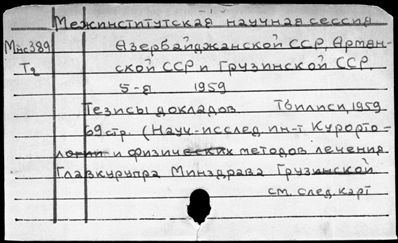 Межинститутская научная сессия
Мнс389 Азербайджанской ССР, Армян-
Т2 ской ССР и Грузинской ССР.
5-я 1959
Тезисы докладов Тбилиси, 1959
69 стр. (Науч.-исслед. ин-т Курорто-
логии и физических методов лечения
Главкурупра Минздрава Грузинской
см. след. карт